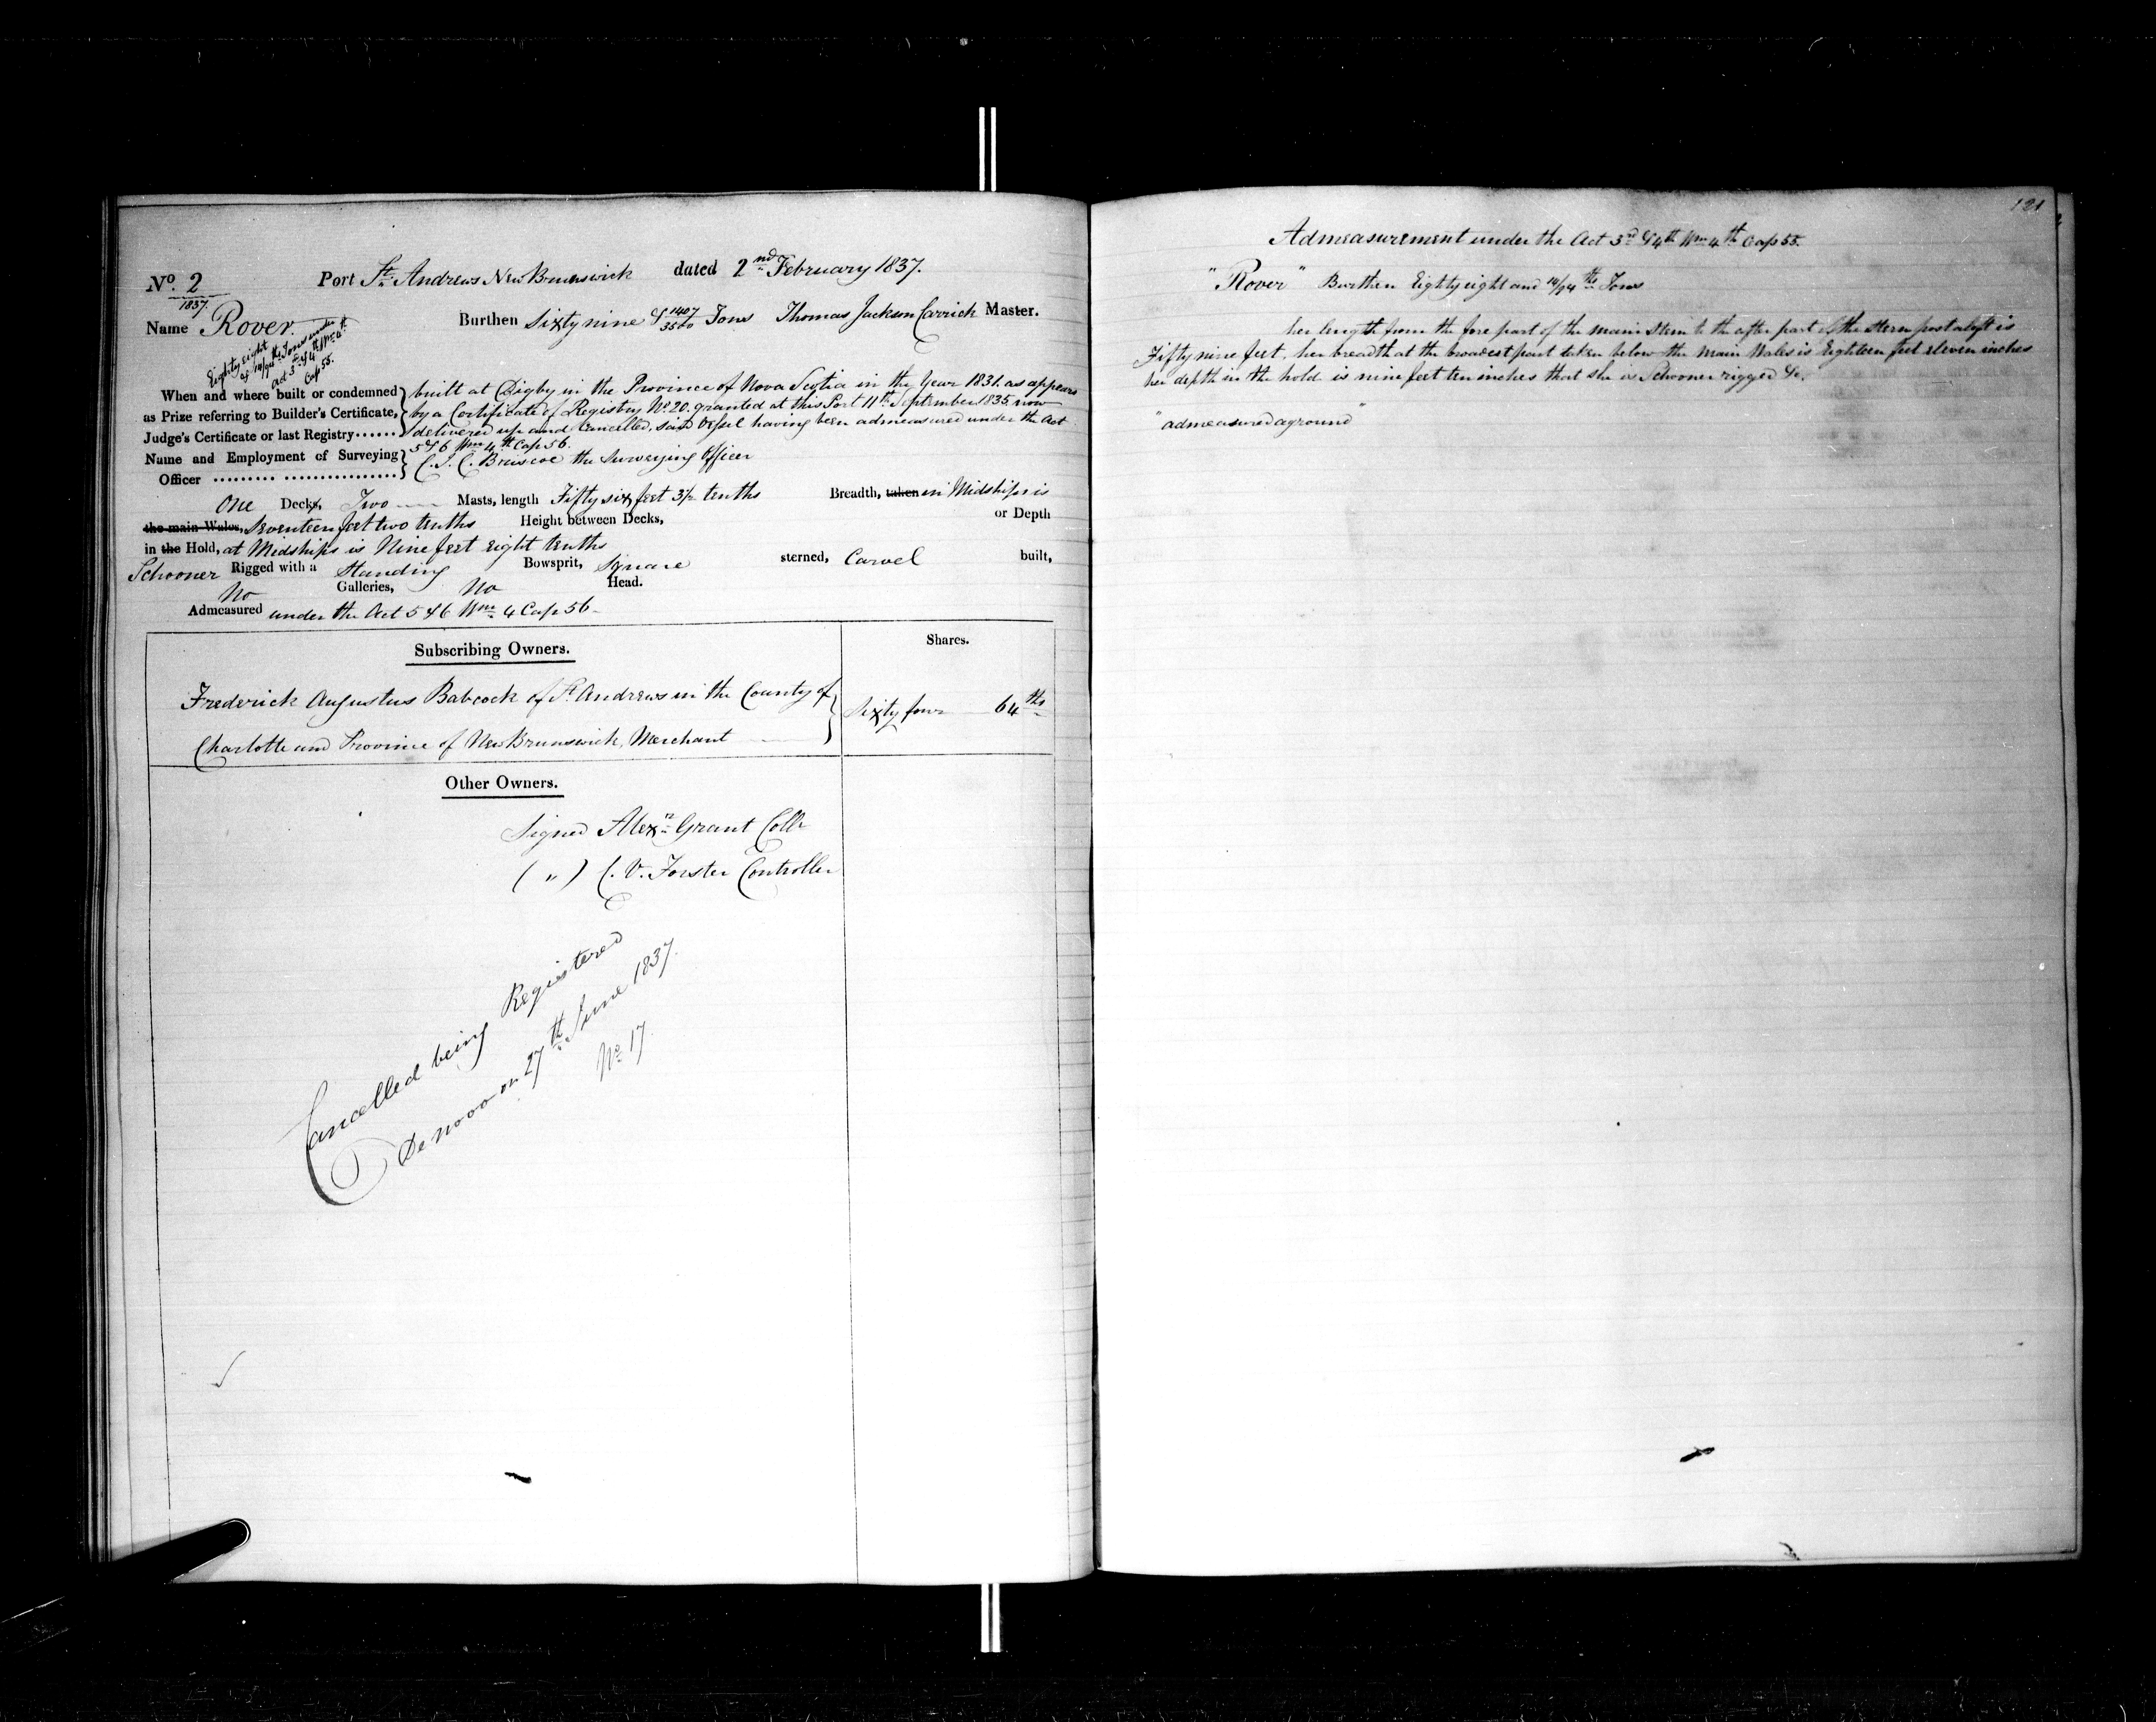 No. 2
1837.
Port St. Andrews New Brunswick dated 2nd February 1837.
Name Rover.
Burthen Sixty nine & 1407/3500 Tons Thomas Jackson Carrick Master.
Eighty eight
& 14/94ths Tons under
Act 3rd & 4th Wm 4th
Cap 55.
When and where built or condemned
as Prize referring to Builder's Certificate,
Judge's Certificate or last Registry......
built at Digby in the Province of Nova Scotia in the Year 1831. as appears
by a Certificate of Registry No. 20. granted at this Port 11th September 1835. now
delivered up and Cancelled, said Vessel having been admeasured under the Act
5 & 6 Wm 4th Cap 56.
Name and Employment of Surveying
Officer ......... .................
C. J. C. Briscoe the Surveying Officer
One Decks, Two Masts, length Fifty six feet 3/12 tenths Breadth, taken in Midships is
the main Wales, Seventeen feet two tenths Height between Decks, or Depth
in the Hold, at Midships is Nine feet Eight tenths
Schooner Rigged with a Standing Bowsprit, Square sterned, Carvel built,
No Galleries, No Head.
Admeasured under the Act 5 & 6 Wm 4 Cap 56
Subscribing Owners. Shares.
Frederick Augustus Babcock of St. Andrews in the County of
Charlotte and Province of New Brunswick, Merchant
Sixty four 64ths
Other Owners.
Signed Alexr Grant Collr
( " ) C. V. Forster Controller
Cancelled being Registered
De novo on 27th June 1837.
No. 17.
121
Admeasurement under the Act 3rd & 4th Wm 4th Cap 55.
"Rover" Burthen Eighty eight and 14/94ths Tons
her length from the fore part of the main Stem to the after part of the Stern post aloft is
Fifty nine feet, her breadth at the broadest part taken below the Main Wales is Eighteen feet eleven inches
her depth in the hold is nine feet ten inches that she is Schooner rigged &c.
"admeasured aground"